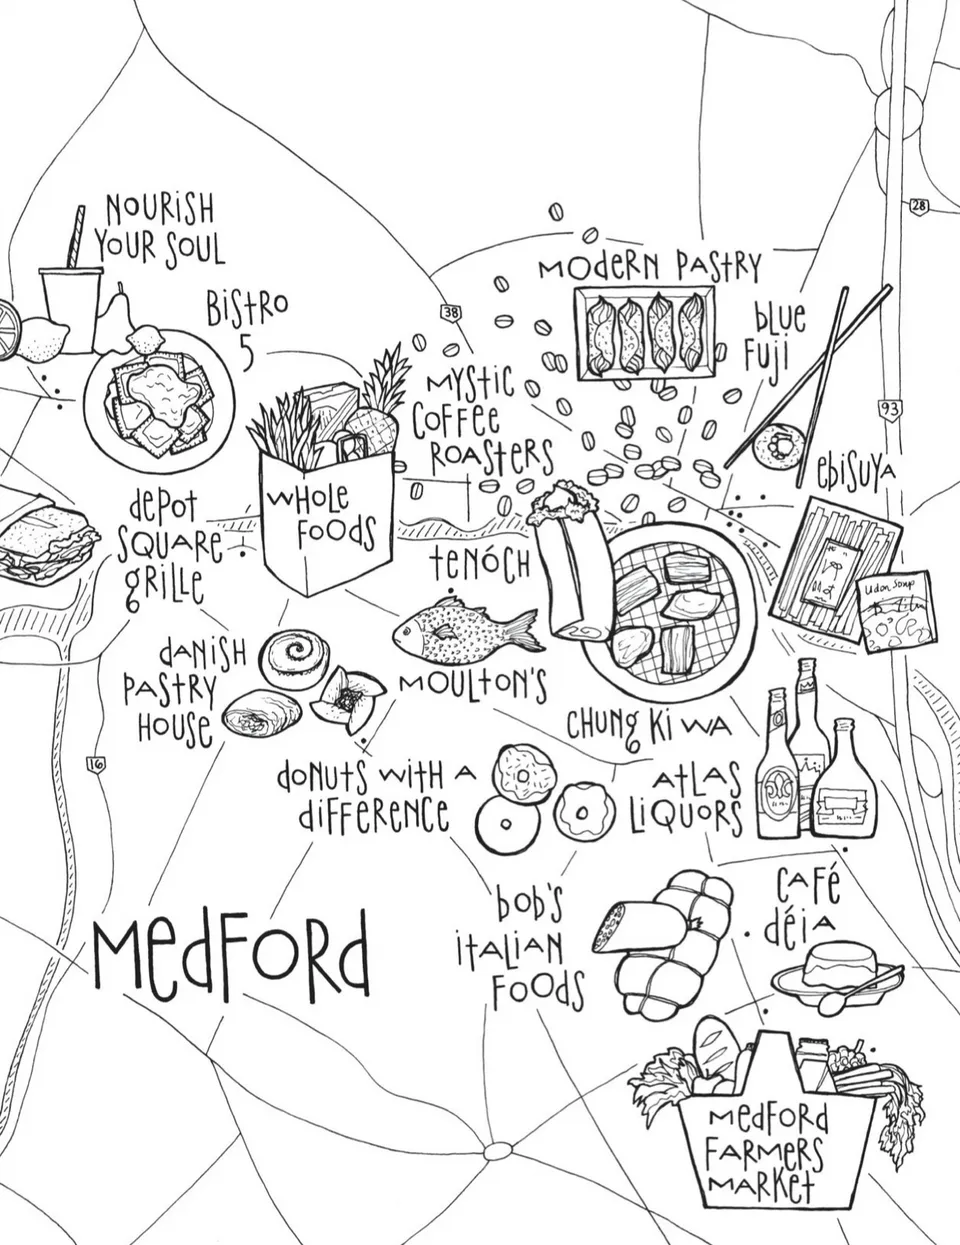 NOURISH
YOUR SOUL
28
BISTRO
5
MODERN PASTRY
38
BLUE
FUJI
MYSTIC
COFFEE
ROASTERS
93
EBISUYA
WHOLE
FOODS
DEPOT
SQUARE
GRILLE
TENÓCH
Udon Soup
DANISH
PASTRY
HOUSE
MOULTON'S
CHUNG KI WA
16
DONUTS WITH A
DIFFERENCE
ATLAS
LIQUORS
BOB'S
ITALIAN
FOODS
CAFÉ
DÉIA
MEDFORD
MEDFORD
FARMERS
MARKET